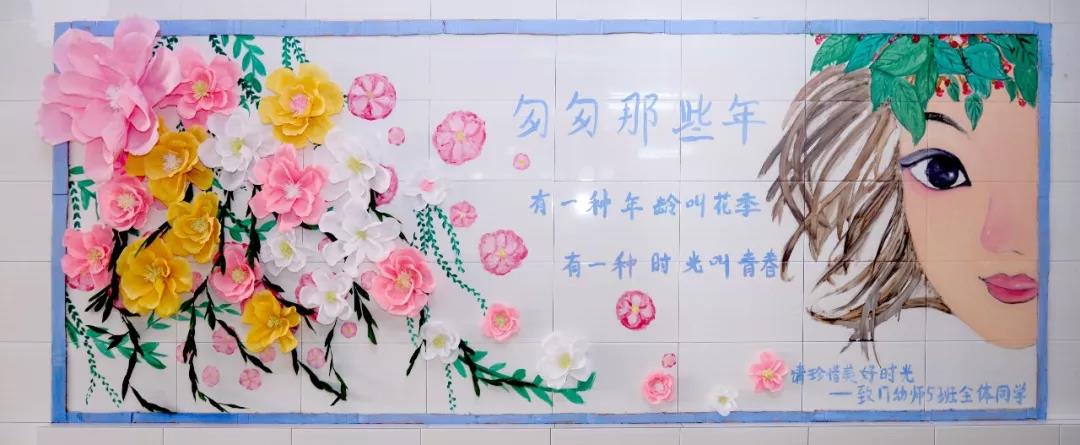 匆匆那些年
有一种年龄叫花季
有一种时光叫青春
请珍惜美好时光
——致17幼师5班全体同学